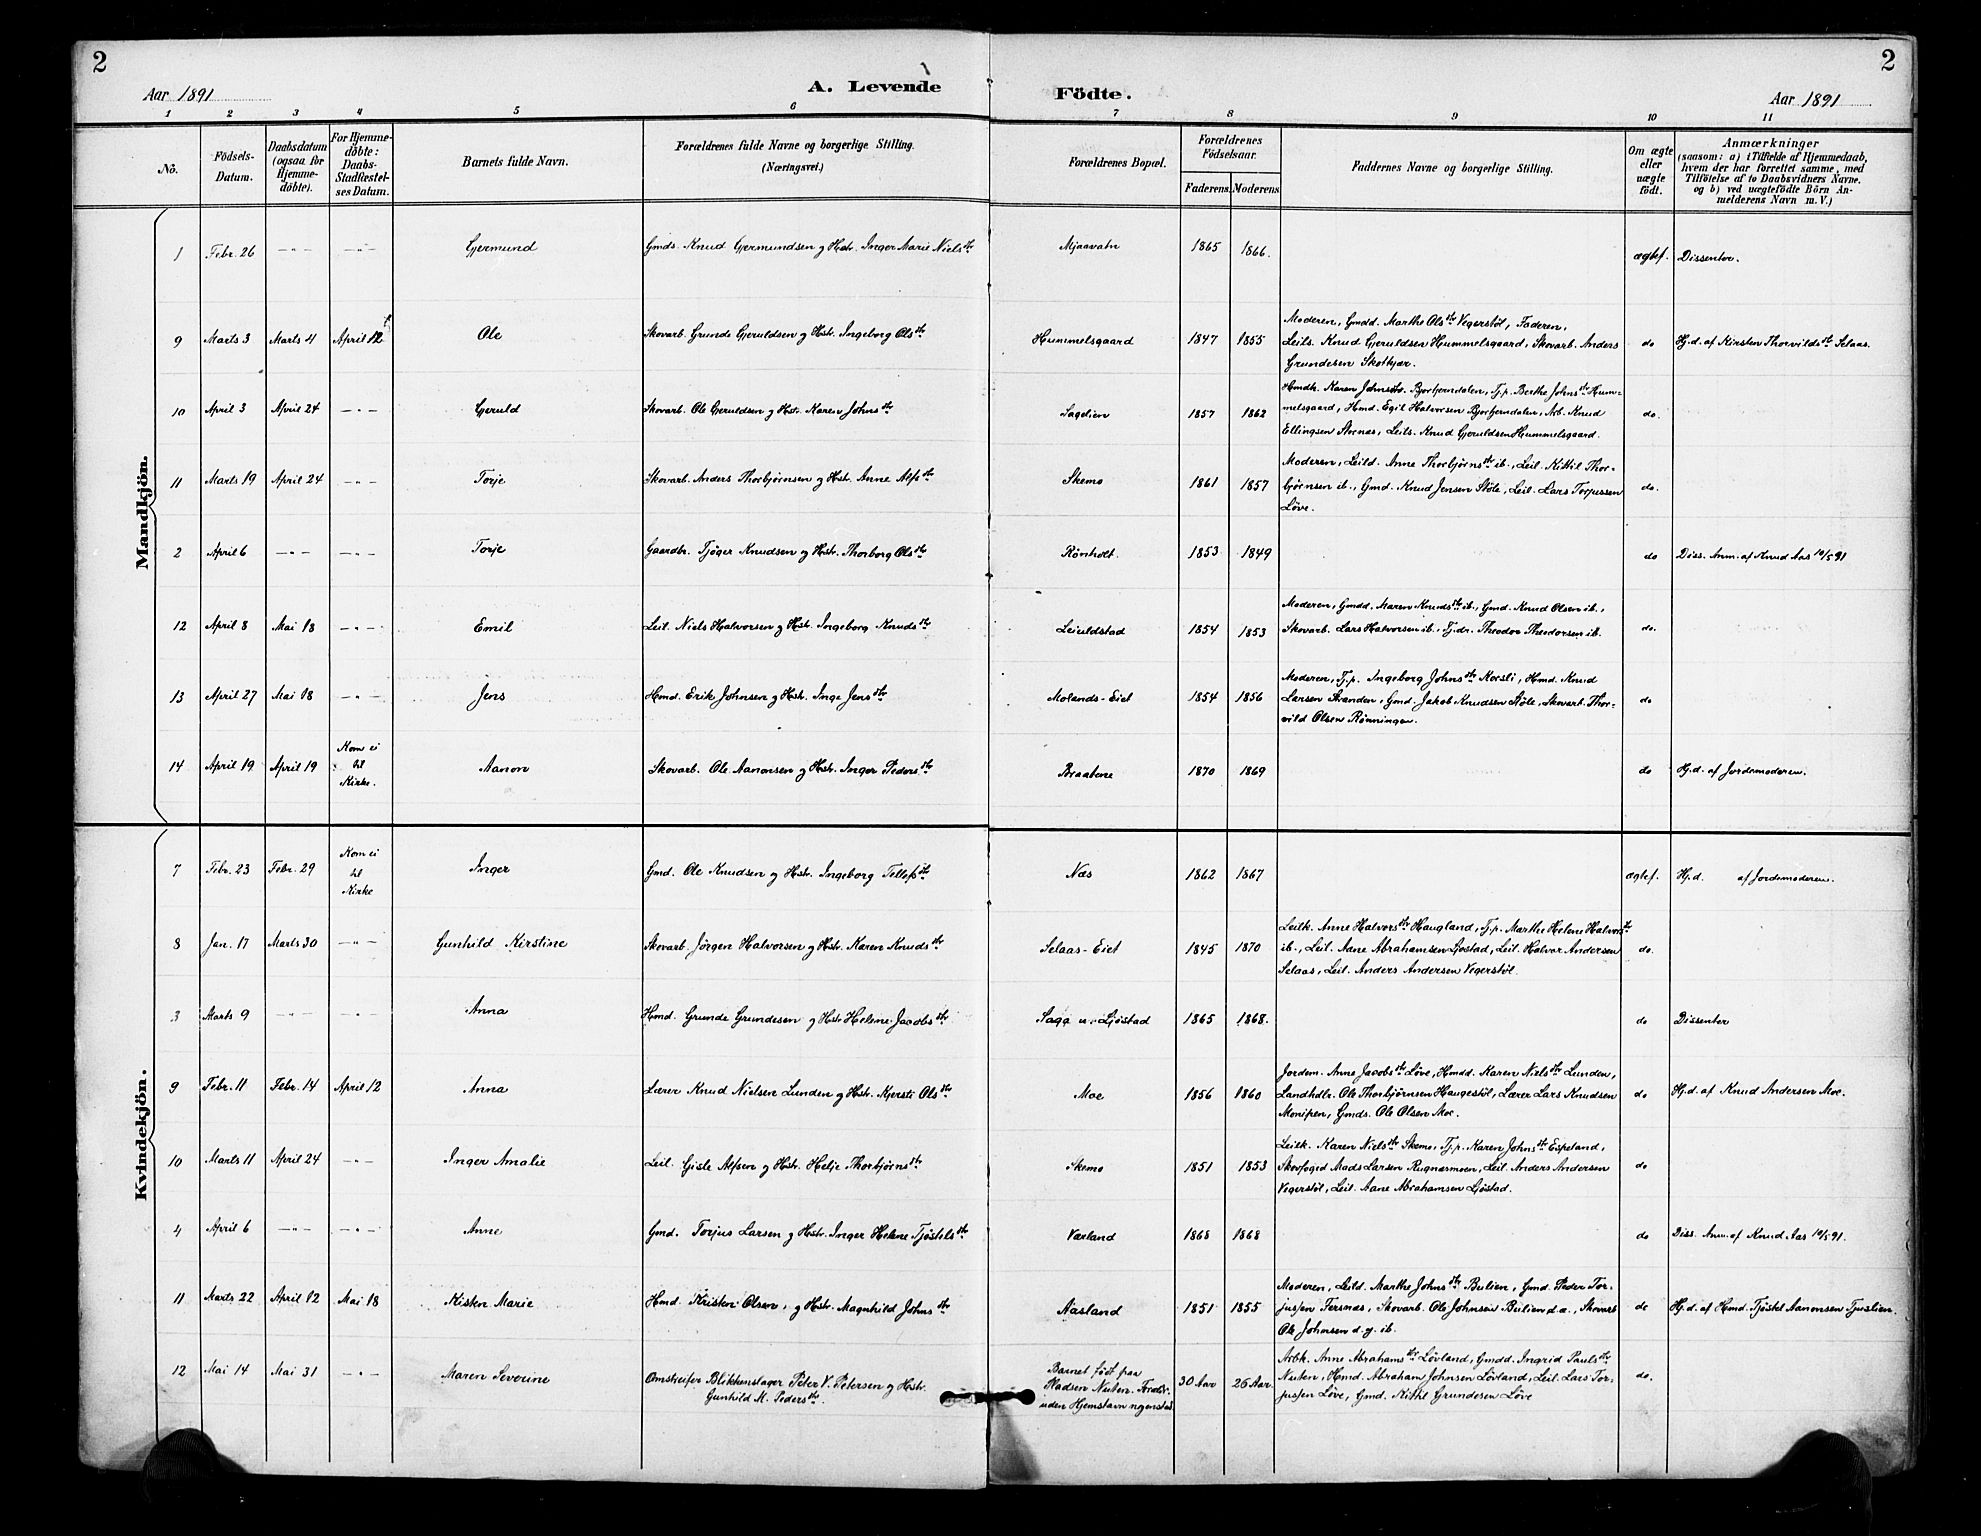 2
2
Aar 1891
A. Levende
Födte.
Aar 1891
1 2 3 4 5 6 7 8 9 10 11
No.
Födsels-
Datum.
Daabsdatum
(ogsaa for
Hjemme-
döbte).
For Hjemme-
döbte:
Daabs-
Stadfæstel-
ses Datum.
Barnets fulde Navn.
Forældrenes fulde Navne og borgerlige Stilling.
(Næringsvei.)
Forældrenes Bopæl.
Forældrenes
Födselsaar.
Faderens.
Moderens.
Faddernes Navne og borgerlige Stilling.
Om ægte
eller
uægte
födt.
Anmærkninger
(saasom: a) i Tilfælde af Hjemmedaab,
hvem der har forrettet samme, med
Tilföielse af to Daabsvidners Navne.
og b) ved uægtefödte Börn An-
melderens Navn m. V.)
Mandkjön.
1 Febr. 26 -"- -"- Gjermund Gmds. Knud Gjermundsen og Hstr. Inger Marie Nielsdtr Mjaavatn 1865 1866. ægtef. Dissenter.
9 Marts 3 Marts 4 April 12 Ole Skovarb. Grunde Gjeruldsen og Hstr. Ingeborg Olsdtr Hummelsgaard 1847 1855
Moderen, Gmdd. Marthe Olsdtr Vegerstøl, Faderen,
Leils. Knud Gjeruldsen Hummelsgaard, Skovarb. Anders
Grundesen
do Hj.d. af Kirsten Thorvildsdtr Selaas.
10 April 3 April 24 -"- Gjeruld Skovarb. Ole Gjeruldsen og Hstr. Karen Johnsdtr Sagelien 1857 1862
Hmdk. Karen Johnsdtr. Bjorbjerndalen, Tj.p. Berthe Johnsdtr Hum-
melsgaard, Hmd. Egil Halvorsen Bjorbjerndalen, Arb. Knud
Ellingsen Stornæs, Leils. Knud Gjeruldsen Hummelsgaard.
do.
11 Marts 19 April 24 -"- Torje Skovarb. Anders Thorbjørnsen og Hstr. Anne Alfsdtr Skemo 1861 1857
Moderen, Leild. Anne Thorbjørnsdtr ib., Leil. Kittil Thor-
bjørnsen ib., Gmd. Knud Jensen Støle, Leil. Lars Torjussen
Løve.
do.
2 April 6 -"- -"- Torje Gaardbr. Tjøger Knudsen og Hstr. Thorborg Olsdtr Rønholt. 1853 1849 do Diss. Anm. af Knud Aas 10/5 91
12 April 8 Mai 18 -"- Emil Leil. Niels Halvorsen og Hstr. Ingeborg Knudsdtr Leiuldstad 1854 1853
Moderen, Gmdd. Maren Knudsdtr ib., Gmd. Knud Olsen ib.,
Skovarb. Lars Halvorsen ib., Tj.dr. Theodor Theodorsen ib.
do.
13 April 27 Mai 18 -"- Jens Hmd. Erik Johnsen og Hstr. Inge Jensdtr Molands-Eiet 1854 1856
Moderen, Tj.p. Ingeborg Johnsdtr Korsli, Hmd. Knud
Larsen Stranden, Gmd. Jakob Knudsen Støle, Skovarb. Thor-
vild Olsen Rønningen.
do
14 April 19 April 19
Kom ei
til
Kirke.
Aanon Skovarb. Ole Aanonsen og Hstr. Inger Pedersdtr Braatene 1870 1869 do Hj.d. af Jordemoderen.
Kvindekjön.
7 Febr. 23 Febr. 29
Kom ei
til
Kirke
Inger Gmd. Ole Knudsen og Hstr. Ingeborg Tellefsdtr Næs 1862 1867 ægtef. Hj.d. af Jordemoderen.
8 Jan. 17 Marts 30 -"- Gunhild Kirstine Skovarb. Jørgen Halvorsen og Hstr. Karen Knudsdtr Selaas-Eiet 1845 1870
Leilk. Anne Halvorsdtr Haugland, Tj.p. Marthe Helene Halvorsdtr
ib., Leil. Aane Abrahamsen Ljøstad, Leil. Halvor Andersen
Selaas, Leil. Anders Andersen Vegerstøl.
do.
3 Marts 9 -"- -"- Anna Hmd. Grunde Grundesen og Hstr Helene Jacobsdtr Saga u. Ljøstad 1865 1868. do Dissenter
9 Febr. 11 Febr. 14 April 12 Anna Lærer Knud Nielsen Lunden og Hstr. Kjersti Olsdtr Moe 1856 1860
Jordem. Anne Jacobsdtr Løve, Hmdd. Karen Nielsdtr Lunden,
Landhdlr. Ole Thorbjørnsen Haugestøl, Lærer Lars Knudsen
Monipen, Gmds. Ole Olsen Moe.
do Hj.d. af Knud Andersen Moe.
10 Marts 11 April 24 -"- Inger Amalie Leil. Gisle Alfsen og Hstr. Helje Thorbjørnsdtr Skemo 1851 1853
Leilk. Karen Nielsdtr Skemo, Tj.p. Karen Johnsdtr Espeland,
Skovfoged Mads Larsen Rugnarmoen, Leil. Anders Andersen
Vegerstøl, Leil. Aane Abrahamsen Ljøstad.
do
4 April 6 -"- -"- Anne Gmd. Torjus Larsen og Hstr. Inger Helene Tjøstelsdtr Værland 1868 1868 do Diss. Anm. af Knud Aas 10/5 91.
11 Marts 22 April 12 Mai 18 Kisten Marie Hmd. Kristen Olsen, og Hstr. Magnhild Johnsdtr Aasland 1851 1855
Moderen, Leild. Marthe Johnsdtr Bulien, Gmd. Peder Tor-
jussen Tersnæs, Skovarb. Ole Johnsen Bulien d.æ., Skovarb
Ole Johnsen d.y. ib.
do Hj.d. af Hmd. Tjøstel Aanonsen Tjuslien.
12 Mai 14 Mai 31 -"- Maren Severine
Omstreifer Blikkenslager Peter V. Petersen og Hstr.
Gunhild M. Pedersdtr.
Barnet født paa
Pladsen Nuten. Forældr.
uden Hjemstavn ngensted.
30 Aar 26 Aar.
Arbk. Anne Abrahamsdtr Løvland, Gmdd. Ingrid Paulsdtr
Nuten, Hmd. Abraham Johnsen Løvland, Leil. Lars Tor-
jussen Løve, Gmd. Kittil Grundesen Løve
do.